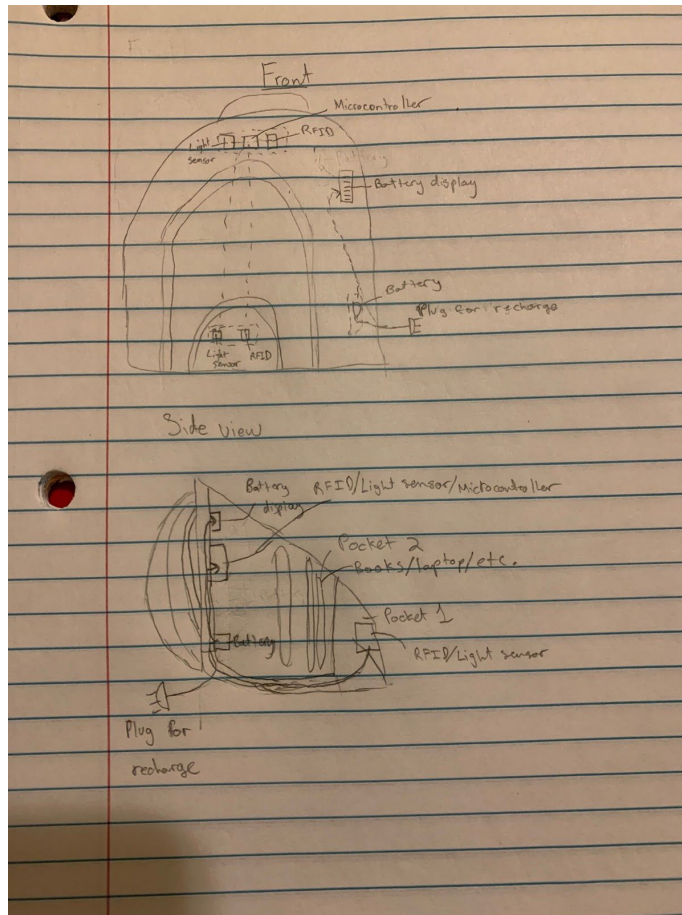 Front
Microcontroller
RFID
Light
sensor
Battery
Battery display
Battery
Plug for recharge
Light
sensor
RFID
Side view
Battery
display
RFID/Light sensor/Microcontroller
Pocket 2
Books/laptop/etc.
Pocket 1
Battery
RFID/Light sensor
Plug for
recharge